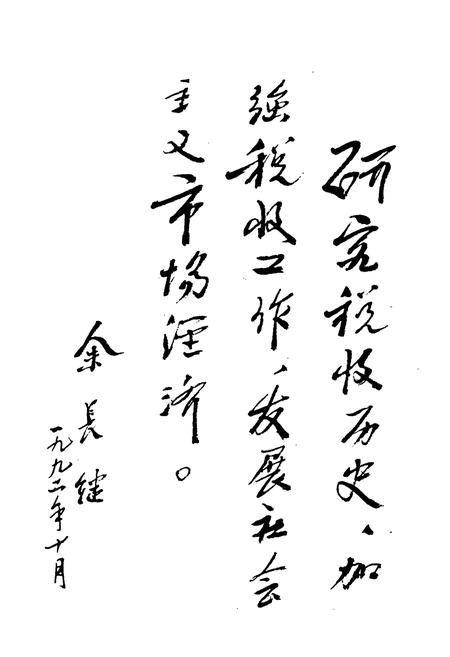 研究税收历史、加
强税收工作、发展社会
主义市场经济。
余长继
一九九二年十月